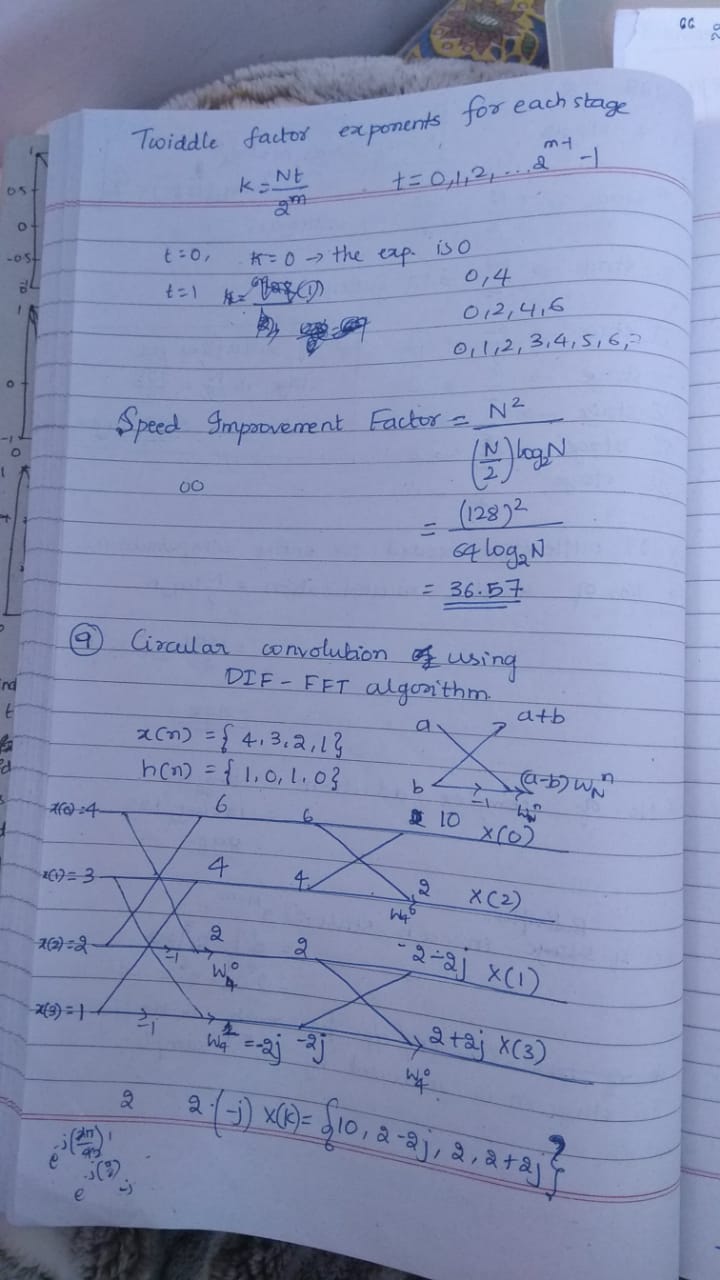 GG
Twiddle factor exponents for each stage
k = Nt / 2^m    t = 0,1,2,...2^(m-1) -1
t=0, k=0 → the exp. is 0
t=1 k=
0,4
0,2,4,6
0,1,2,3,4,5,6,7
Speed Improvement Factor = N² / (N/2) log₂N
00
= (128)² / 64 log₂N
= 36.57
9 Circular convolution using
DIF-FFT algorithm.
x(n) = { 4,3,2,1}
h(n) = { 1,0,1,0}
a a+b
b -1 (a-b) W_N^n
W_N^n
x(0)=4 6 6 10 X(0)
x(1)=3 4 4 2 X(2)
W₄⁰
x(2)=2 -1 2 2 -2-2j X(1)
W₄⁰
x(3)=1 -1 W₄ =-2j -2j 2+2j X(3)
W₄⁰
2 2·(-j) X(k)= {10, 2-2j, 2, 2+2j}